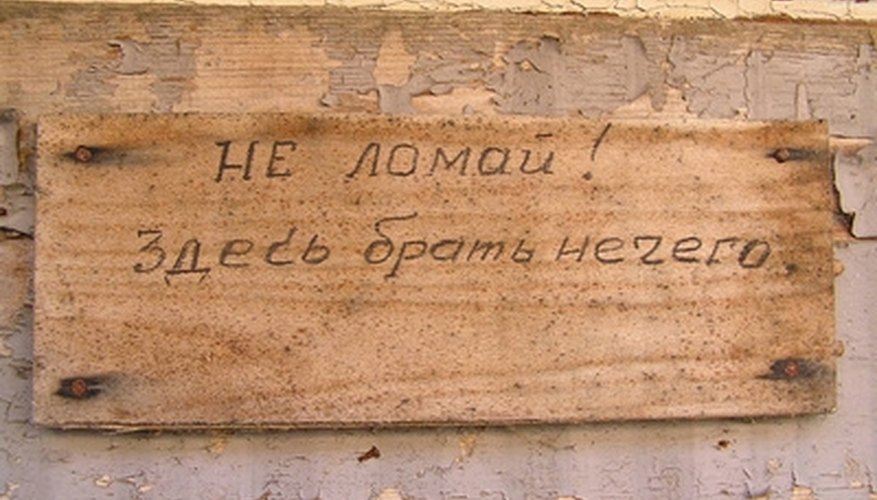 НЕ ломай!
Здесь брать нечего.